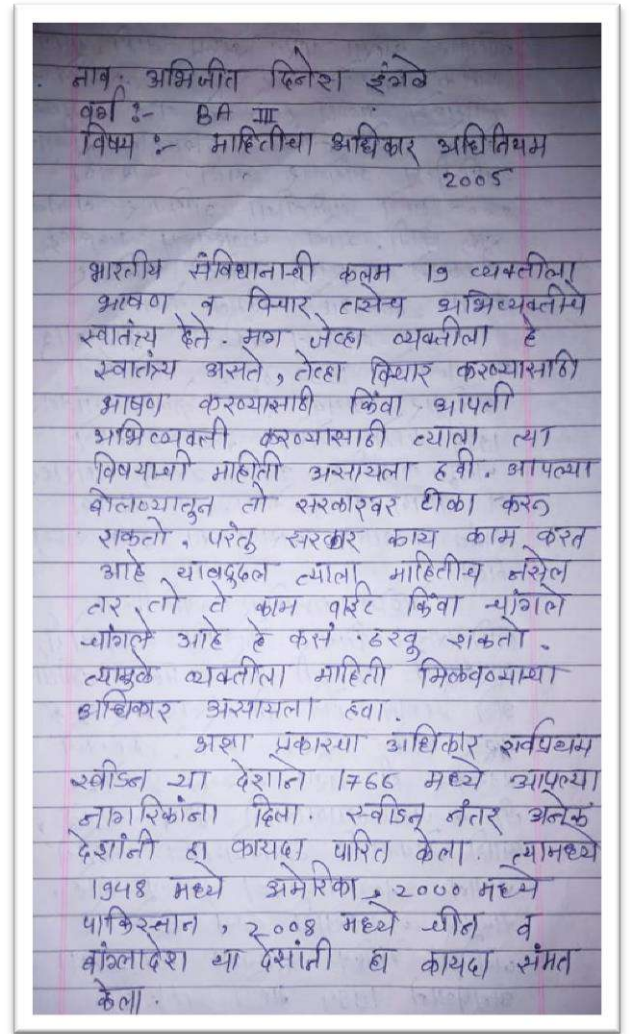 नाव :- अभिजीत दिनेश इंगळे
वर्ग :- BA III
विषय :- माहितीचा अधिकार अधिनियम
2005
भारतीय संविधानाची कलम 19 व्यक्तीला
भाषण व विचार तसेच अभिव्यक्तीचे
स्वातंत्र्य देते. मग जेव्हा व्यक्तीला हे
स्वातंत्र्य असते, तेव्हा विचार करण्यासाठी
भाषण करण्यासाठी किंवा आपली
अभिव्यक्ती करण्यासाठी त्याला त्या
विषयाची माहीती असायला हवी. आपल्या
बोलण्यातून तो सरकारवर टीका करू
शकतो. परंतु सरकार काय काम करत
आहे याबद्दल त्याला माहितीच नसेल
तर तो ते काम वाईट किंवा चांगले
चांगले आहे हे कसं ठरवु शकतो.
त्यामुळे व्यक्तीला माहिती मिळवण्याचा
अधिकार असायला हवा.
अशा प्रकारचा अधिकार सर्वप्रथम
स्वीडन या देशाने 1766 मध्ये आपल्या
नागरिकांना दिला. स्वीडन नंतर अनेक
देशांनी हा कायदा पारित केला त्यामध्ये
1948 मध्ये अमेरिका, 2000 मध्ये
पाकिस्तान, 2008 मध्ये चीन व
बांग्लादेश या देशांनी हा कायदा संमत
केला.